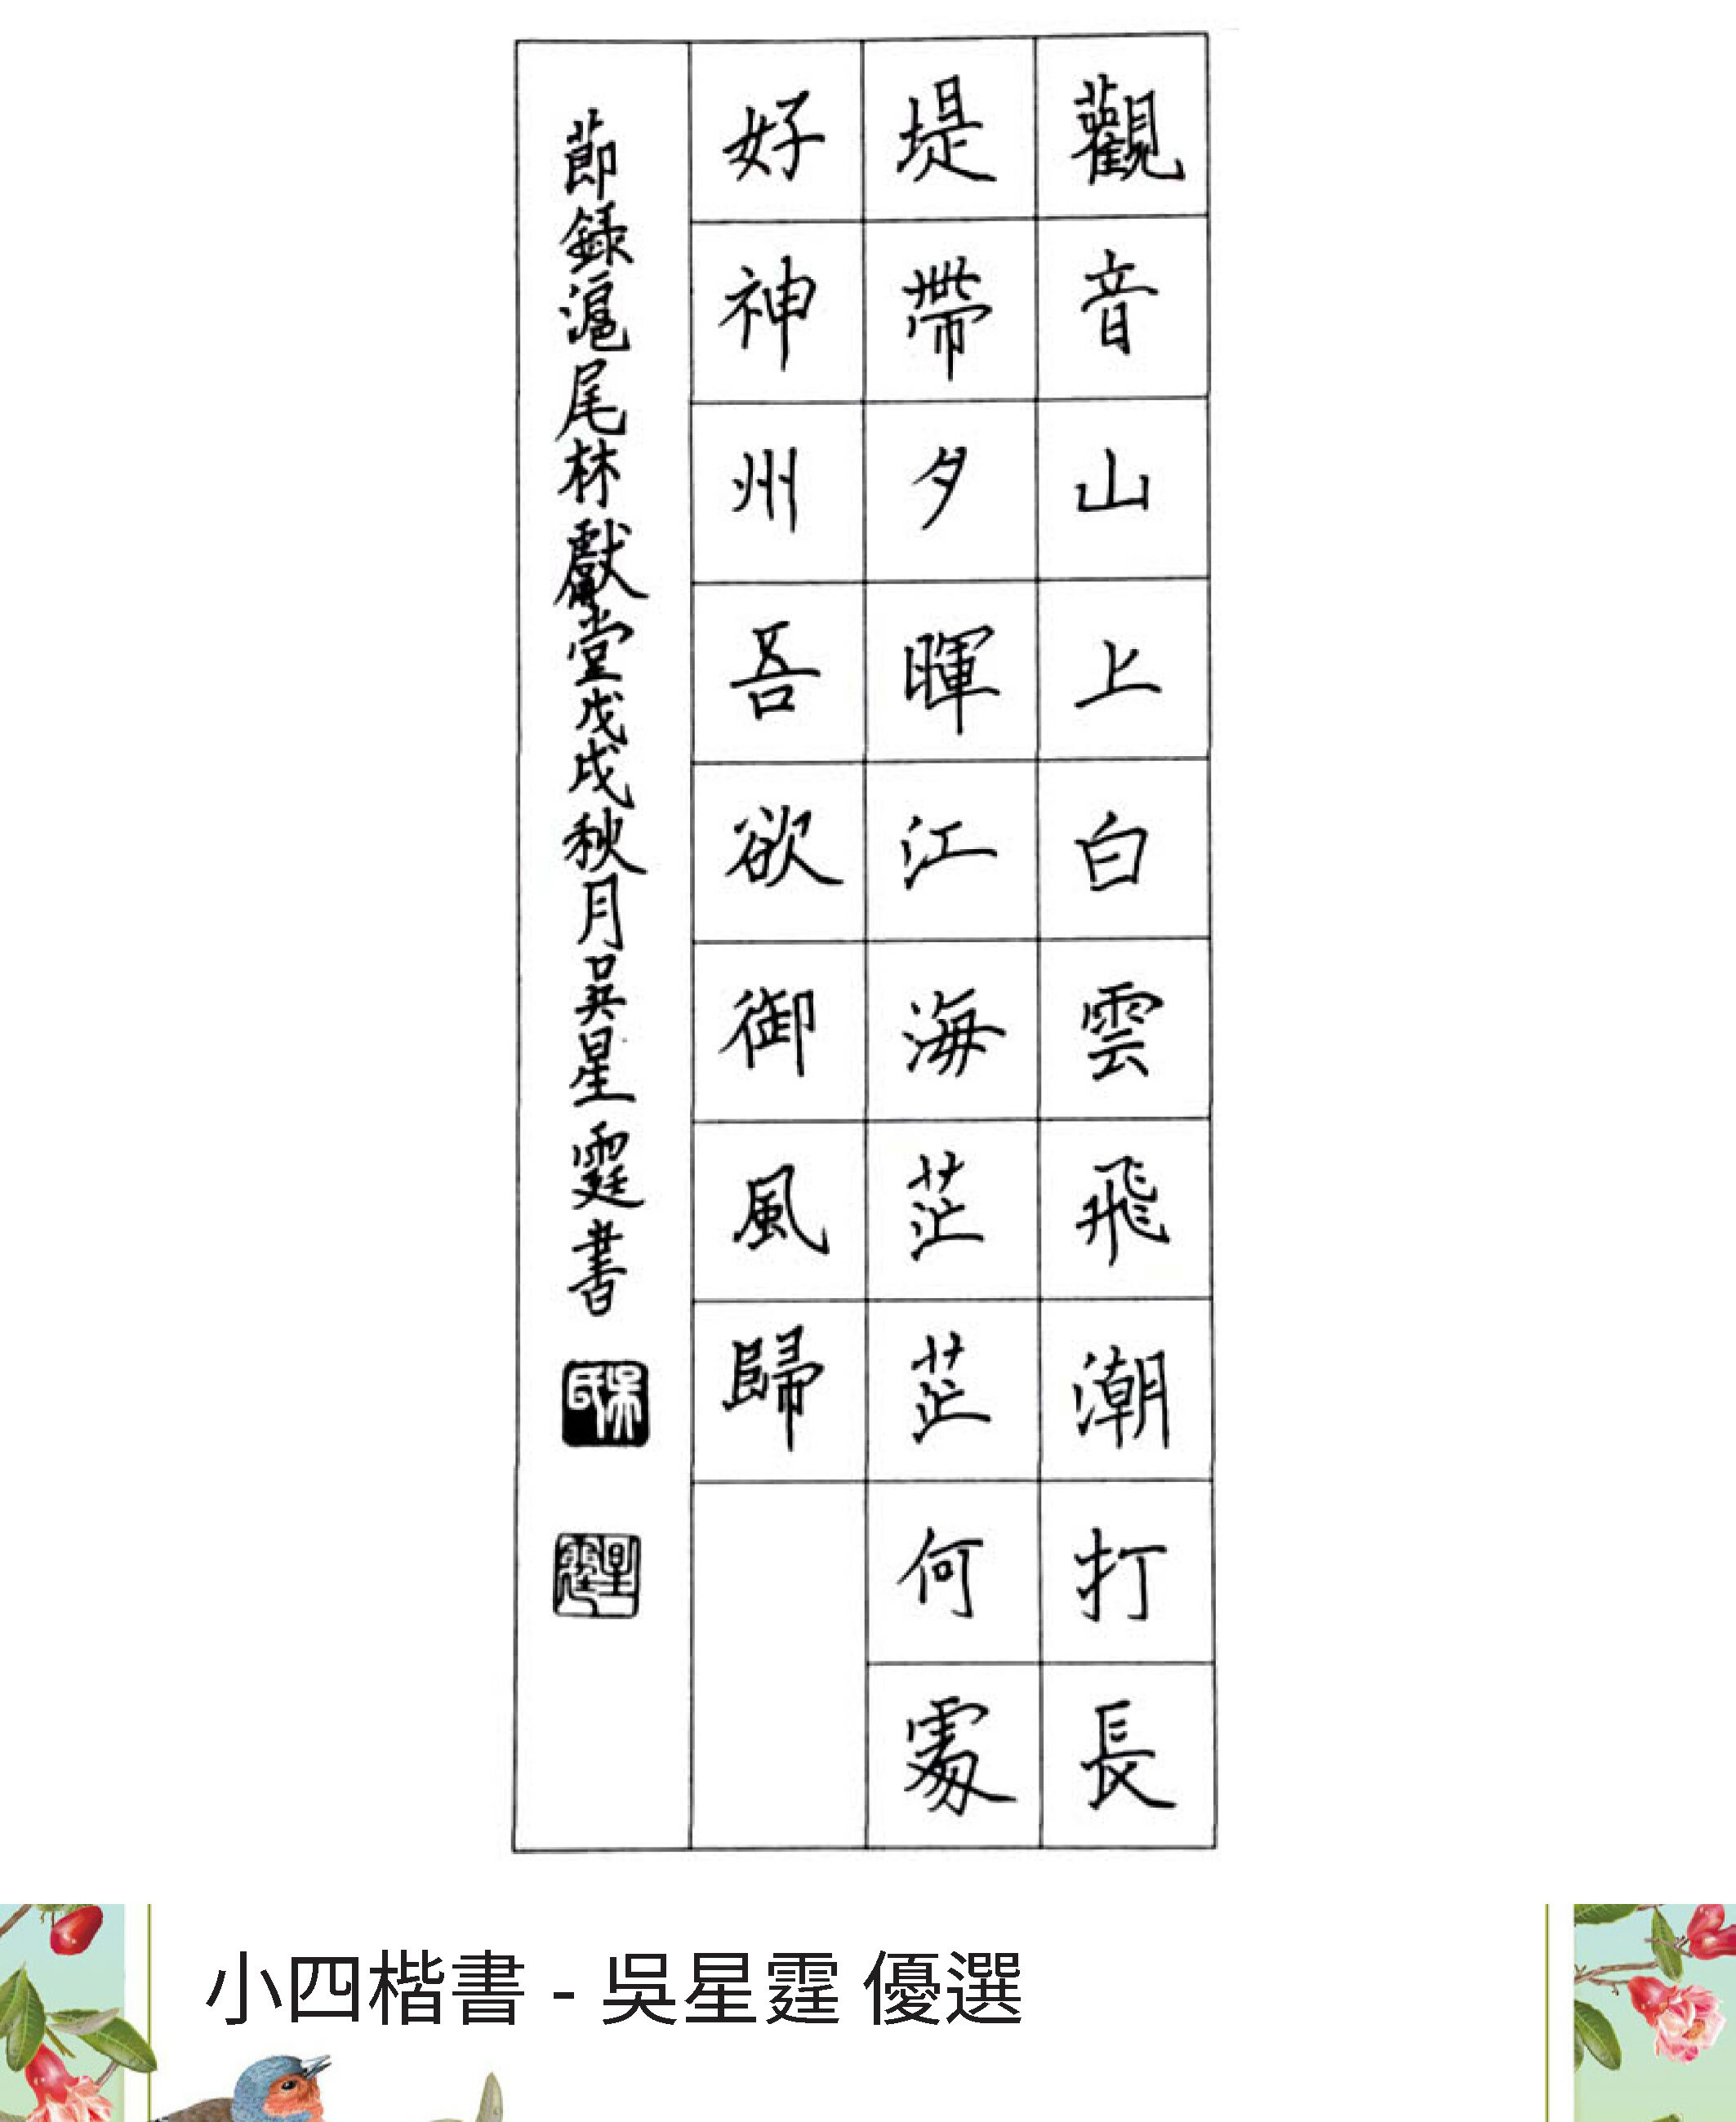 觀音山上白雲飛潮打長
堤帶夕暉江海茫茫何處
好神州吾欲御風歸
節錄滬尾林獻堂戊戌秋月吳星霆書
吳氏
星霆
小四楷書 - 吳星霆 優選